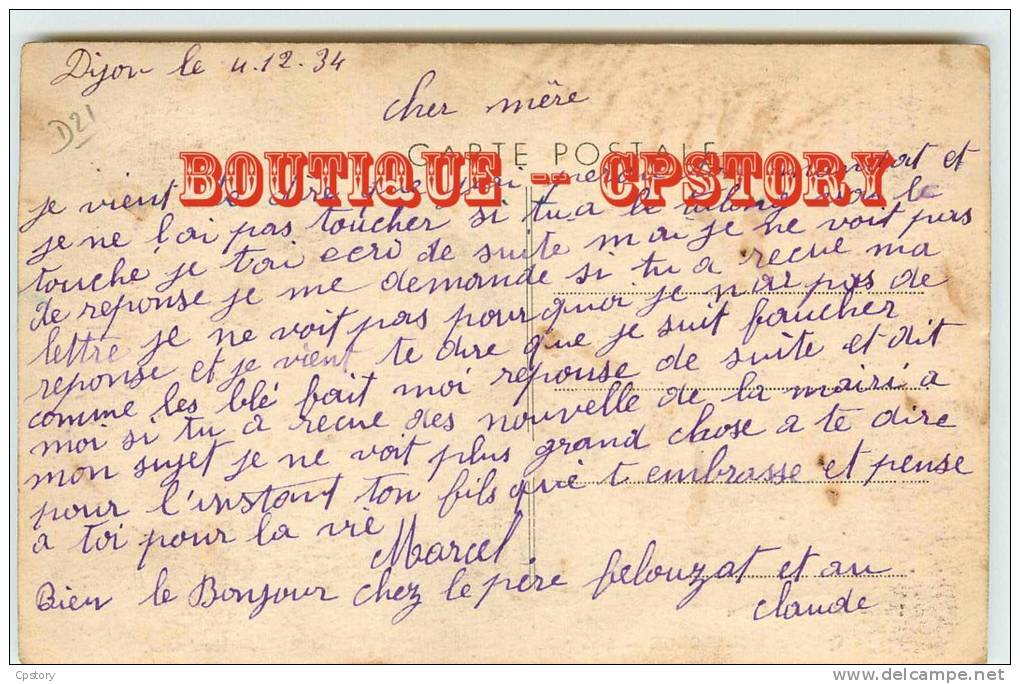 Dijon le 4.12.34
D21
cher mère
CARTE POSTALE
BOUTIQUE -- CPSTORY
je vient te dire que et
je ne l'ai pas toucher si tu a le
touché je tai ecri de suite mai je ne voit pas
de reponse je me demande si tu a recue ma
lettre je ne voit pas pourquoi je n'ai pas de
reponse et je vient te dire que je suit faucher
comme les blé fait moi reponse de suite et dit
moi si tu a recue des nouvelle de la mairi a
mon sujet je ne voit plus grand chose a te dire
pour l'instant ton fils qui t embrasse et pense
a toi pour la vie
Marcel
Bien le Bonjour chez le père pelouzat et au
claude
Cpstory
www.delcampe.net